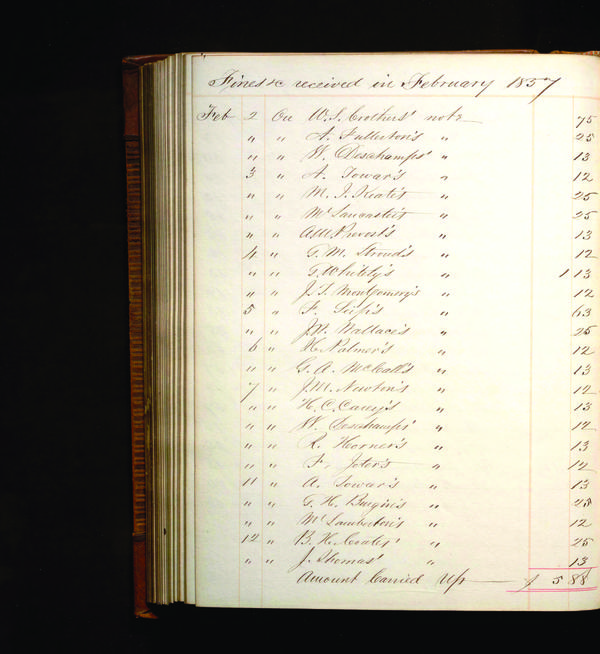 Fines &c received in February 1857
Feb 2 On W. S. Crothers' note 75
" " A. Fullerton's " 25
" " W. Deschamps' " 13
3 " A. Towar's " 12
" " M. J. Keate's " 25
" " Mc Lancaster's " 25
" " A. M. Prevost's " 13
4 " G. M. Stroud's " 12
" " T. Whitely's " 1 13
" " J. T. Montgomery's " 12
5 " F. 63
" " J. W. Wallace's " 25
6 " H. Palmer's " 12
" " G. A. McCall's " 13
7 " J. M. Newton's " 12
" " H. C. Carey's " 13
" " W. Deschamps' " 12
" " R. Horner's " 13
" " F. " 12
11 " A. Towar's " 13
" " T. H. " 25
" " Mc Lamberton's " 12
12 " B. H. Coates' " 25
" " J. Thomas' " 13
Amount Carried Up $ 5 88